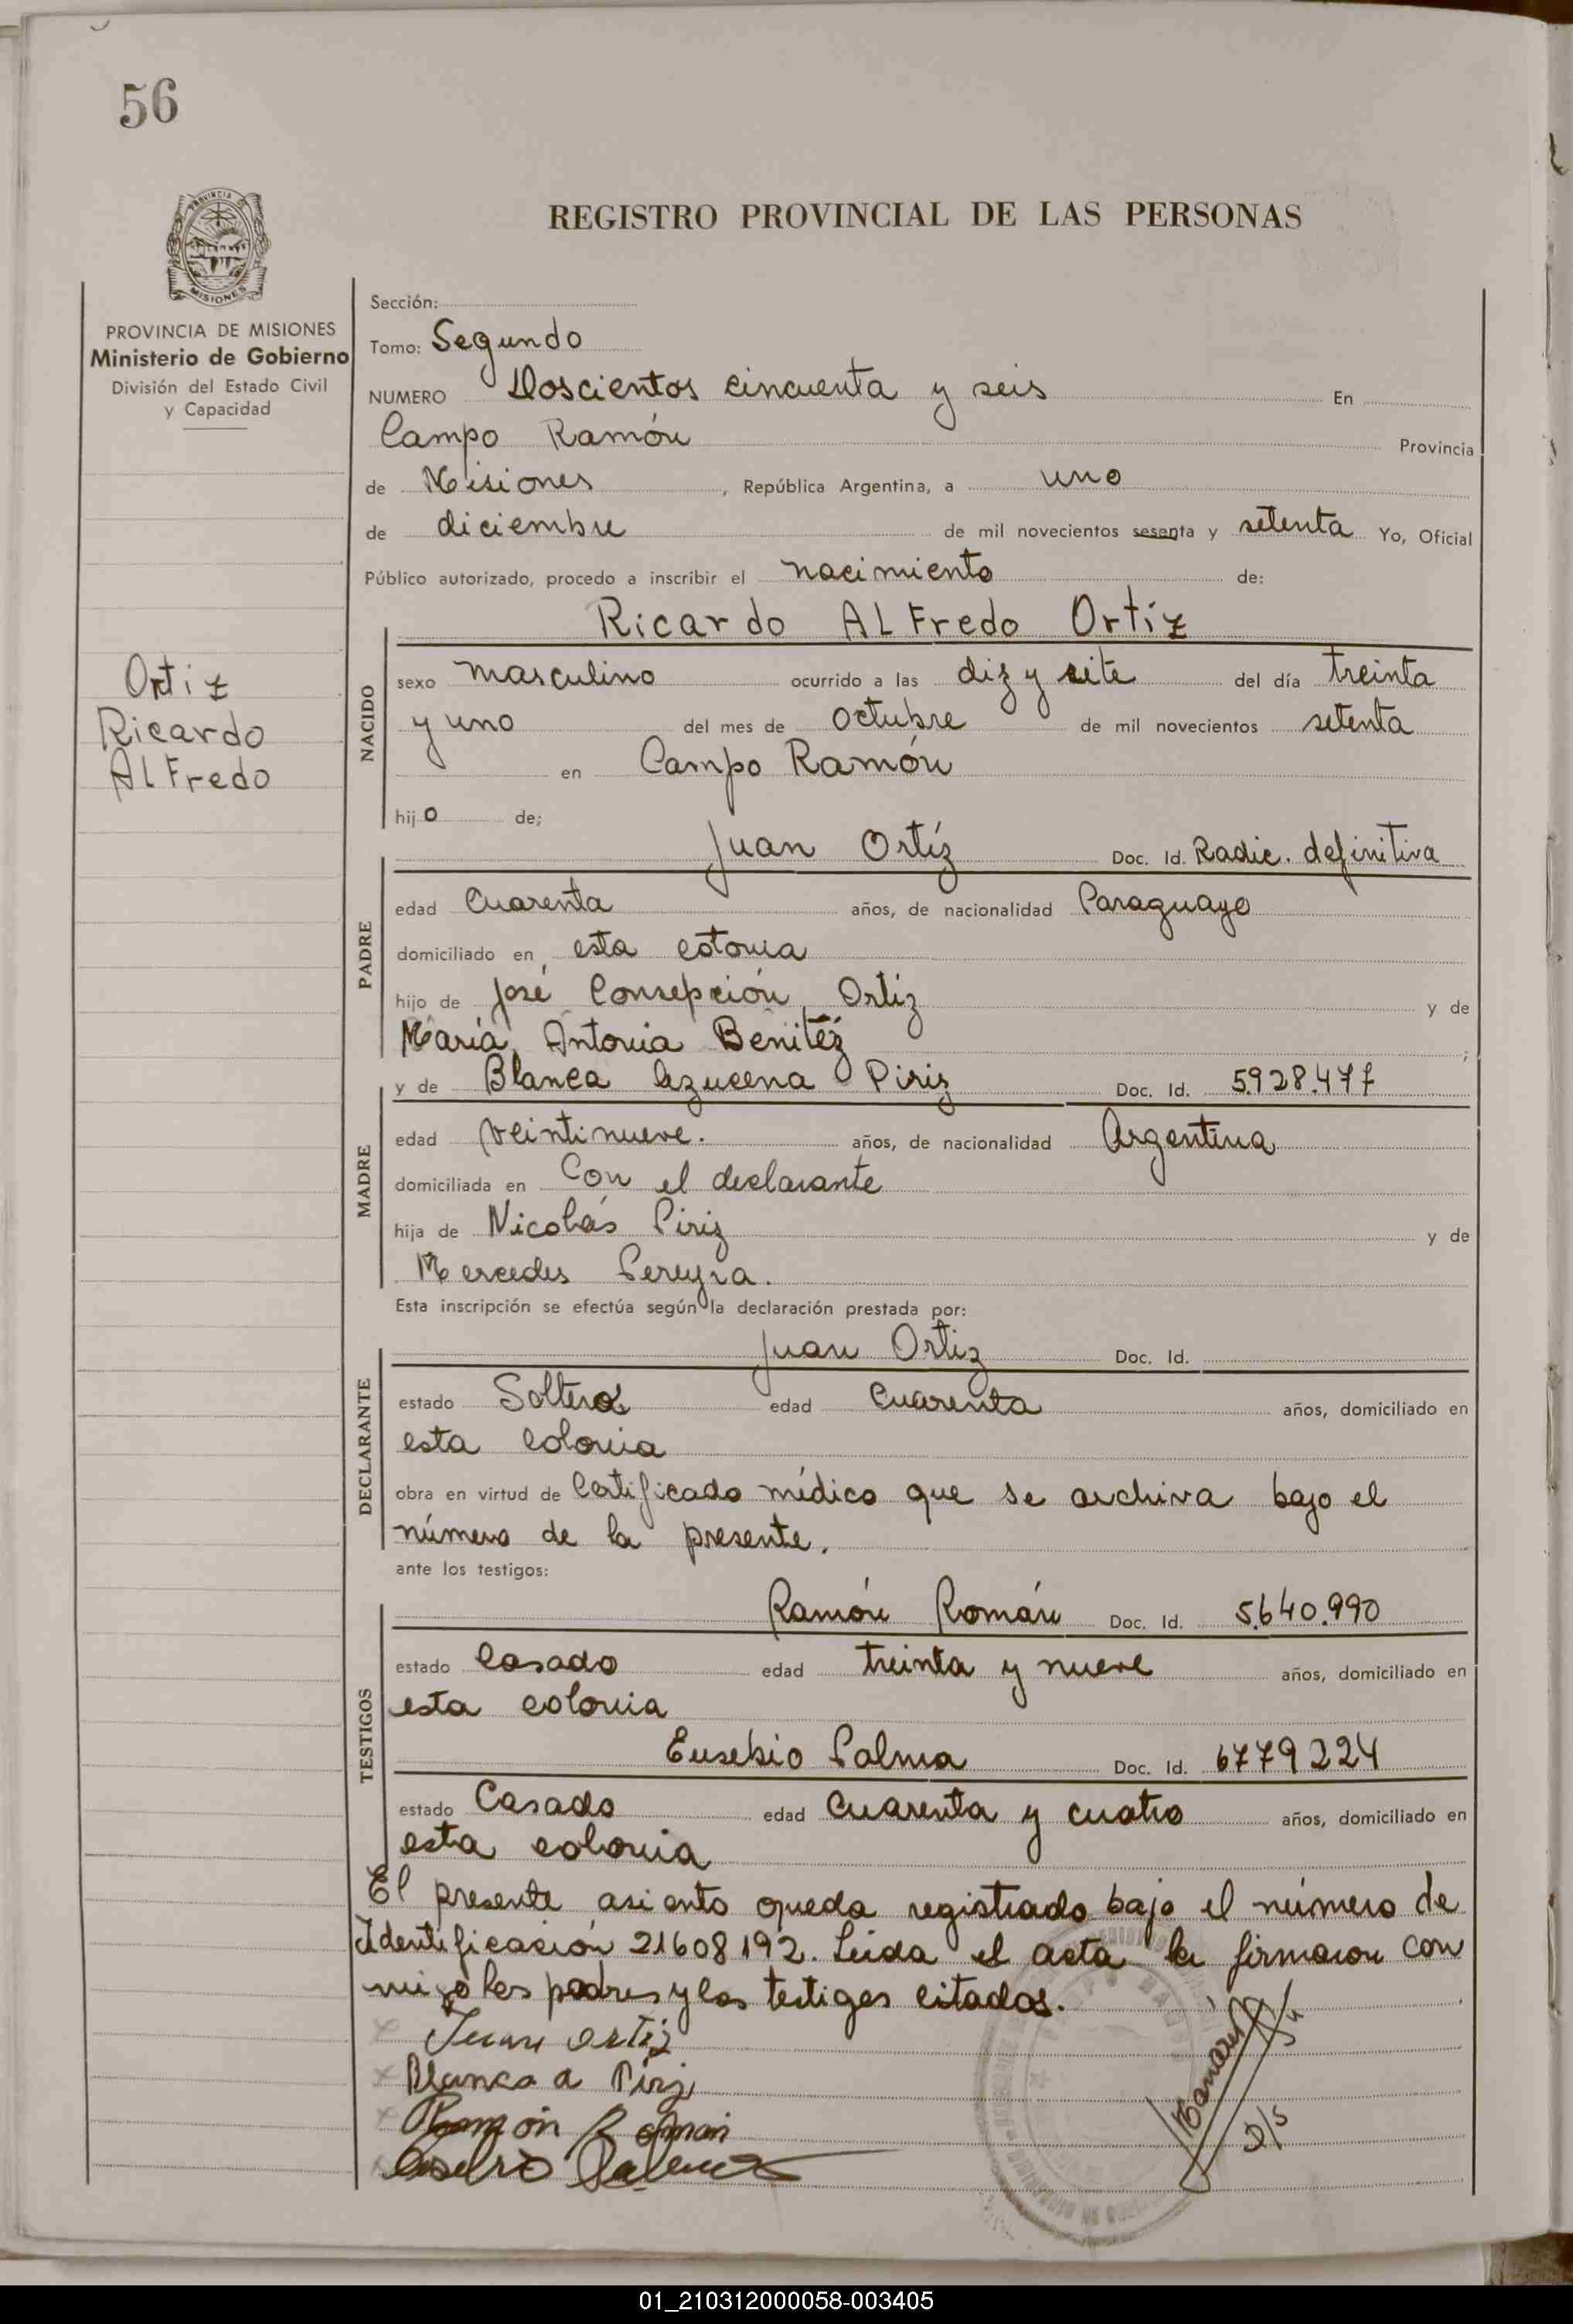 56
REGISTRO PROVINCIAL DE LAS PERSONAS
PROVINCIA DE MISIONES
Ministerio de Gobierno
División del Estado Civil
y Capacidad
Ortiz
Ricardo
ALFredo
Sección:
Tomo: Segundo
NUMERO Doscientos cincuenta y seis En
Campo Ramón Provincia
de Misiones, República Argentina, a uno
de diciembre de mil novecientos sesenta y setenta Yo, Oficial
Público autorizado, procedo a inscribir el nacimiento de:
Ricardo ALFredo Ortíz
NACIDO
sexo masculino ocurrido a las diz y siete del día treinta
y uno del mes de octubre de mil novecientos setenta
en Campo Ramón
hijo de;
Juan Ortíz Doc. Id. Radic. definitiva
PADRE
edad Cuarenta años, de nacionalidad Paraguayo
domiciliado en esta colonia
hijo de José Consepción Ortiz y de
María Antonia Benitéz;
y de Blanca Azucena Piriz Doc. Id. 5.928.477
MADRE
edad veintinueve. años, de nacionalidad Argentina
domiciliada en Con el declarante
hija de Nicolás Piriz y de
Mercedes Pereyra.
Esta inscripción se efectúa según la declaración prestada por:
Juan Ortiz Doc. Id.
DECLARANTE
estado Soltero edad Cuarenta años, domiciliado en
esta colonia
obra en virtud de Certificado médico que se archiva bajo el
número de la presente.
ante los testigos:
Ramón Román Doc. Id. 5.640.990
TESTIGOS
estado Casado edad treinta y nueve años, domiciliado en
esta colonia
Eusebio Palma Doc. Id. 6779224
estado Casado edad Cuarenta y cuatro años, domiciliado en
esta colonia
El presente asiento queda registrado bajo el número de
Identificación 21608192. Leida el acta la firmaron con
migo los padres y los testigos citados.
Juan ortiz
Blanca a Piriz
Ramón Roman
Palma
01_210312000058-003405